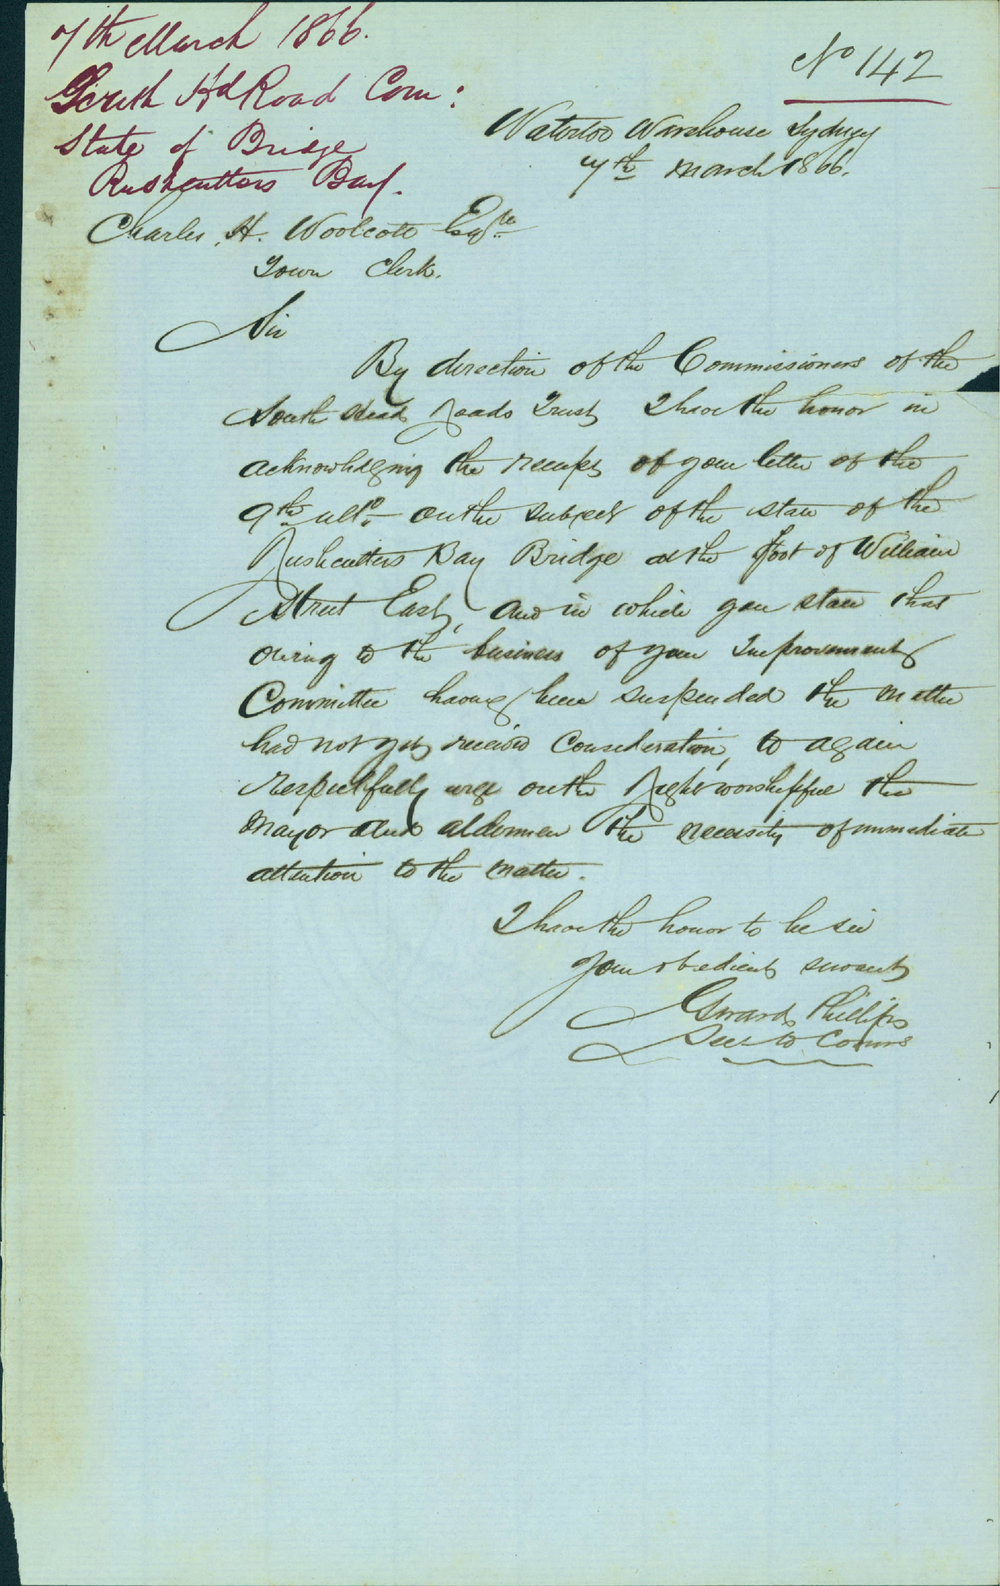 7th March 1866.
South Hd Road Com:
State of Bridge
Rushcutters Bay.
No 142
Waterloo Warehouse Sydney
7th March 1866.
Charles H. Woolcott Esqre
Town Clerk.
Sir
By direction of the Commissioners of the
South Head Roads Trust I have the honor in
acknowledging the receipt of your letter of the
9th ulto on the subject of the state of the
Rushcutters Bay Bridge at the foot of William
Street East, and in which you state that
owing to the business of your Improvement
Committee having been suspended the matter
had not yet received Consideration, to again
respectfully urge on the Right worshipful the
Mayor and aldermen the necessity of immediate
attention to the matter.
I have the honor to be sir
your obedient servant
Edward Phillips
Sec to Comrs